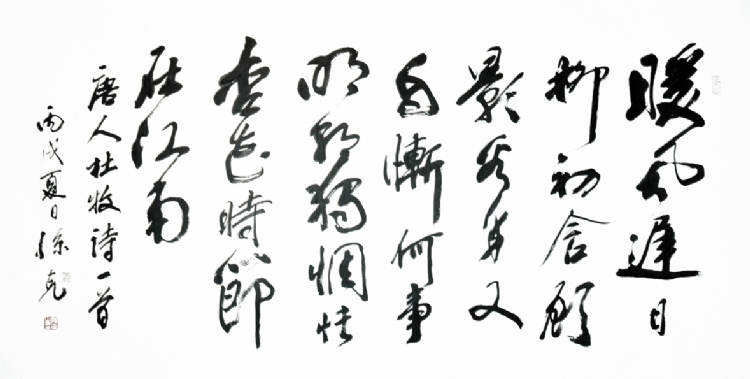 暖风遲日
柳初含顧
影看身又
自慚何事
明朝獨惆怅
杏花時節
在江南
唐人杜牧詩一首
丙戌夏日